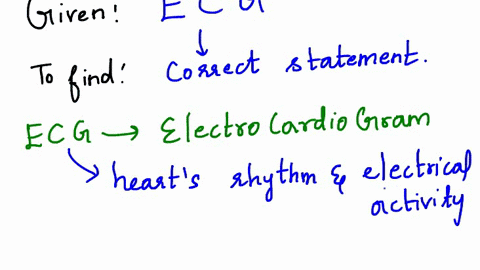 Given! E C G
To find! Correct statement.
ECG → Electro Cardio Gram
heart's rhythm & electrical
activity